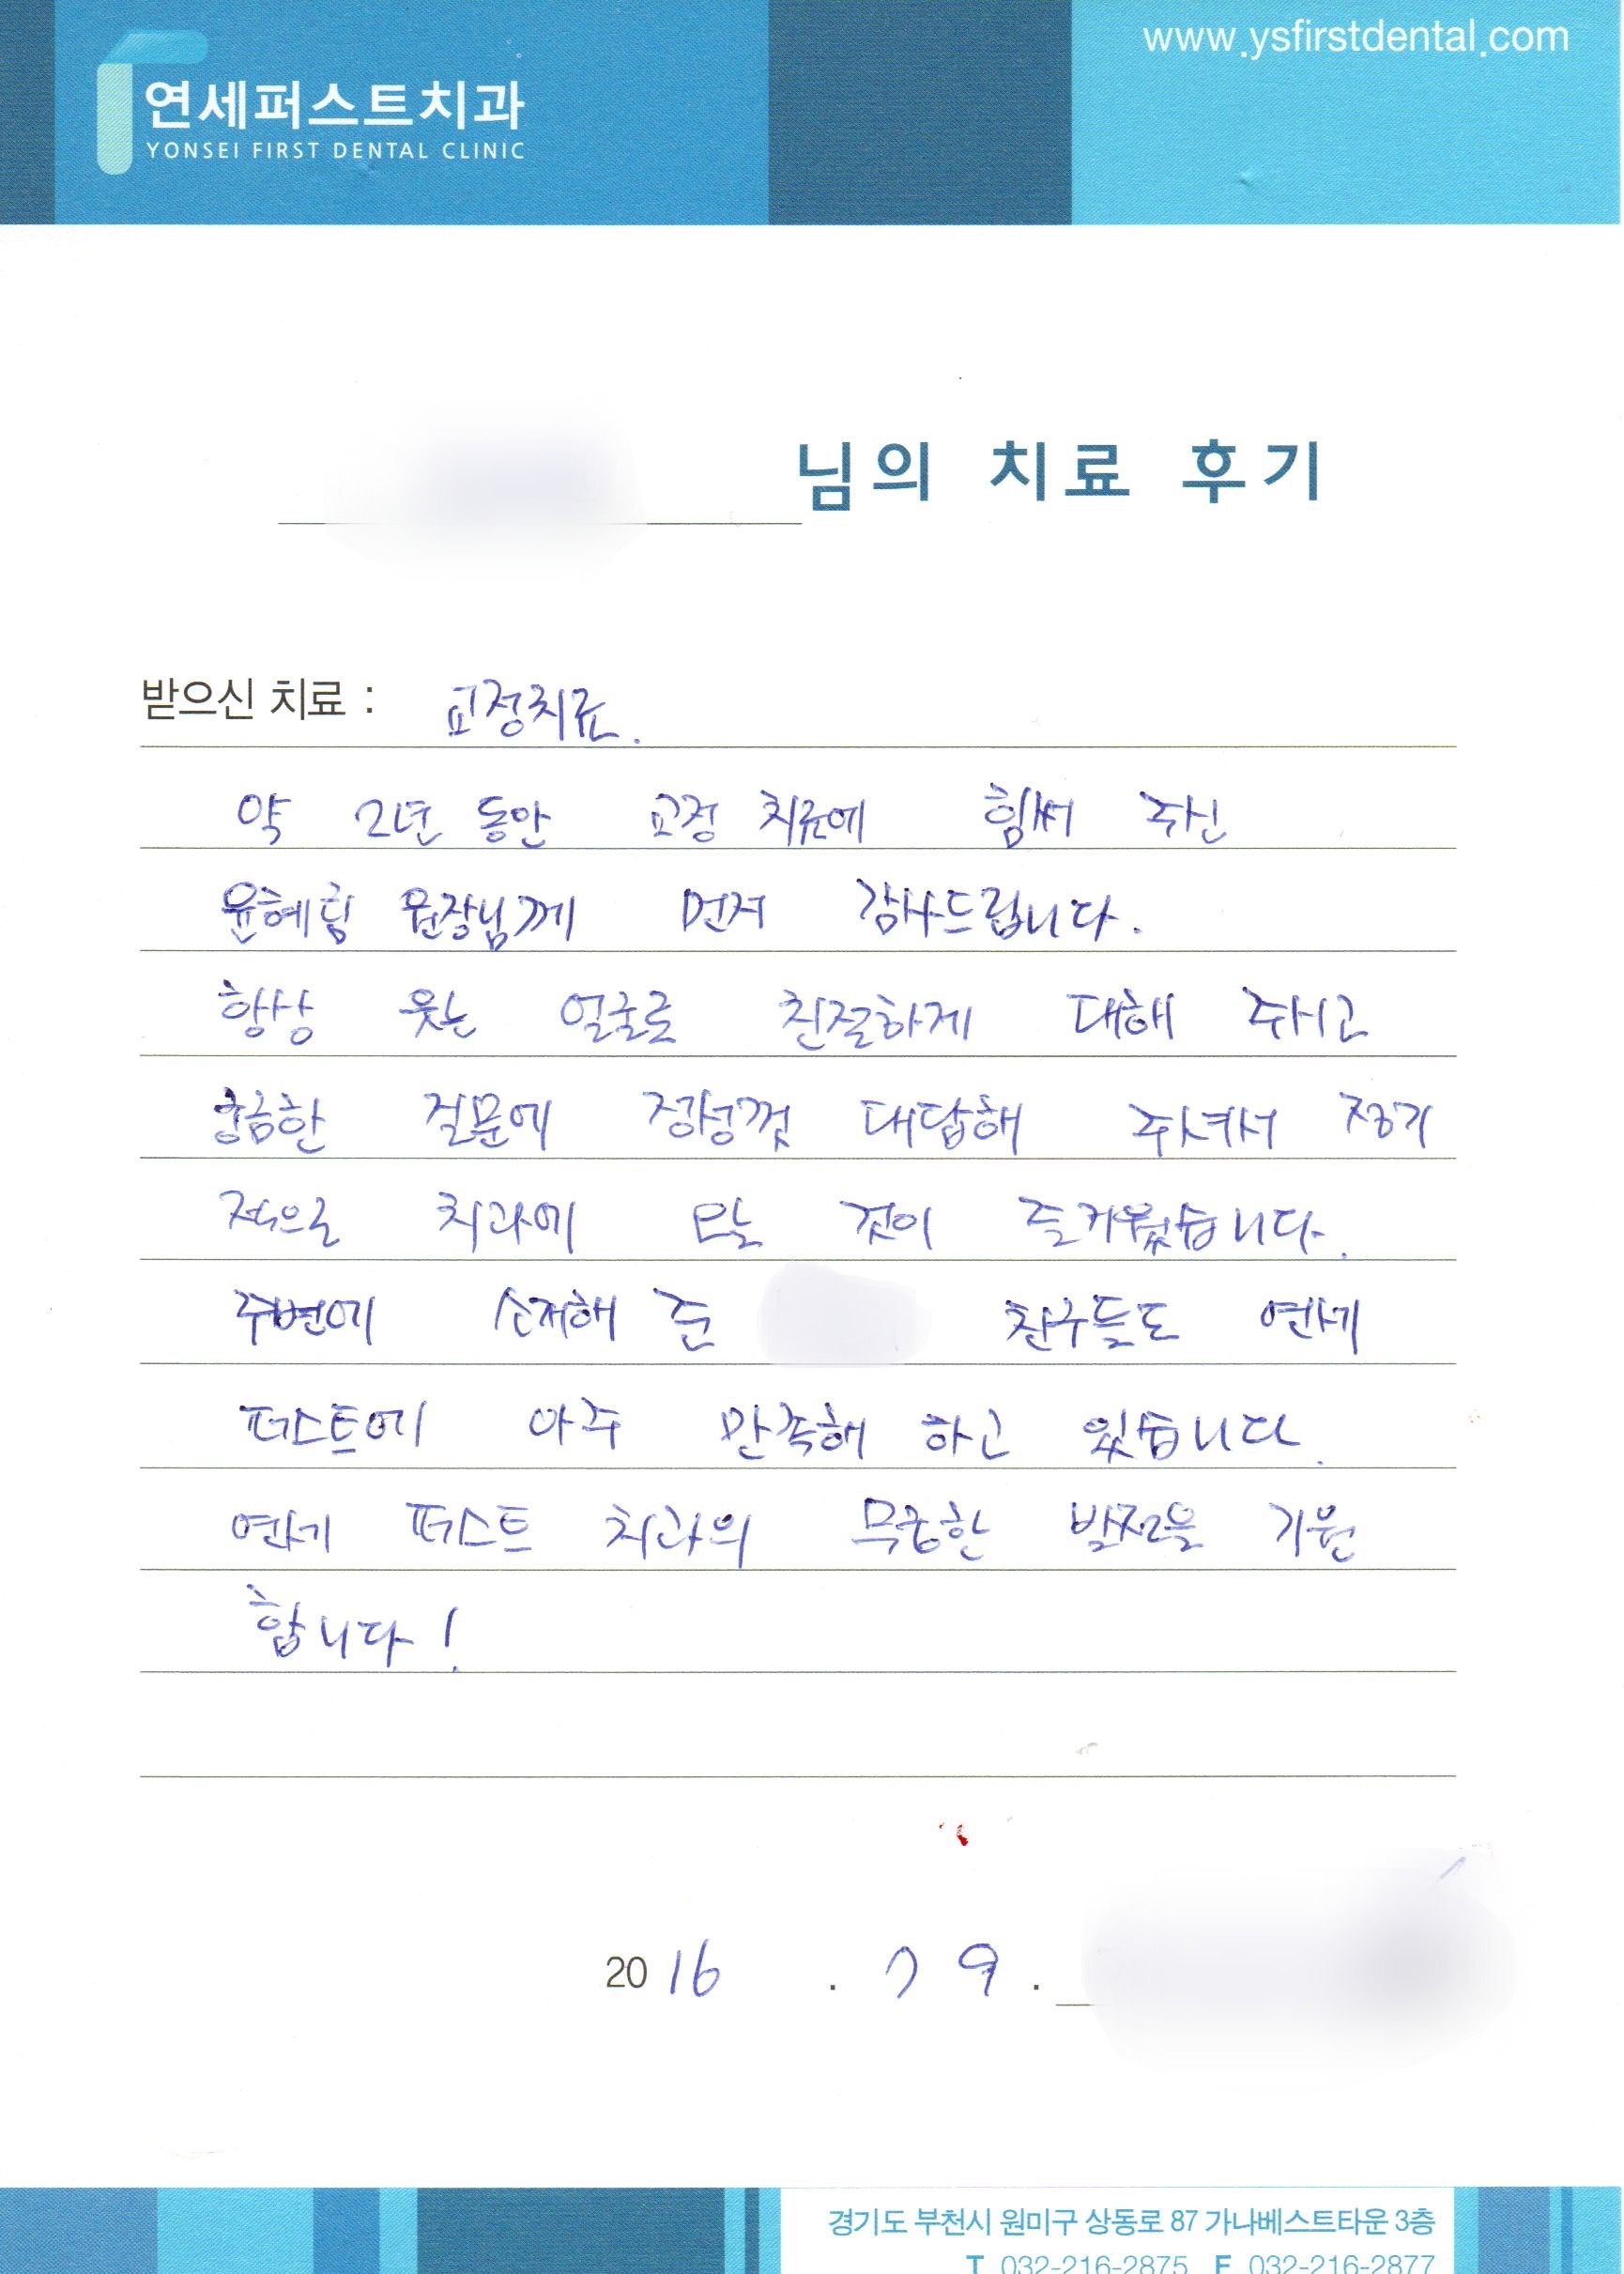 www.ysfirstdental.com
연세퍼스트치과
YONSEI FIRST DENTAL CLINIC
님의 치료 후기
받으신 치료 : 교정치료.
약 2년 동안 교정 치료에 힘써 주신
원장님께 먼저 감사드립니다.
항상 웃는 얼굴로 친절하게 대해 주시고
궁금한 질문에 정성껏 대답해 주셔서 정기
적으로 치과에 오는 것이 즐거웠습니다.
주변에 소개해 준 친구들도 연세
퍼스트에 아주 만족해 하고 있습니다.
연세 퍼스트 치과의 무궁한 발전을 기원
합니다!
2016 . 7 9 .
경기도 부천시 원미구 상동로 87 가나베스트타운 3층
T 032-216-2875 F 032-216-2877